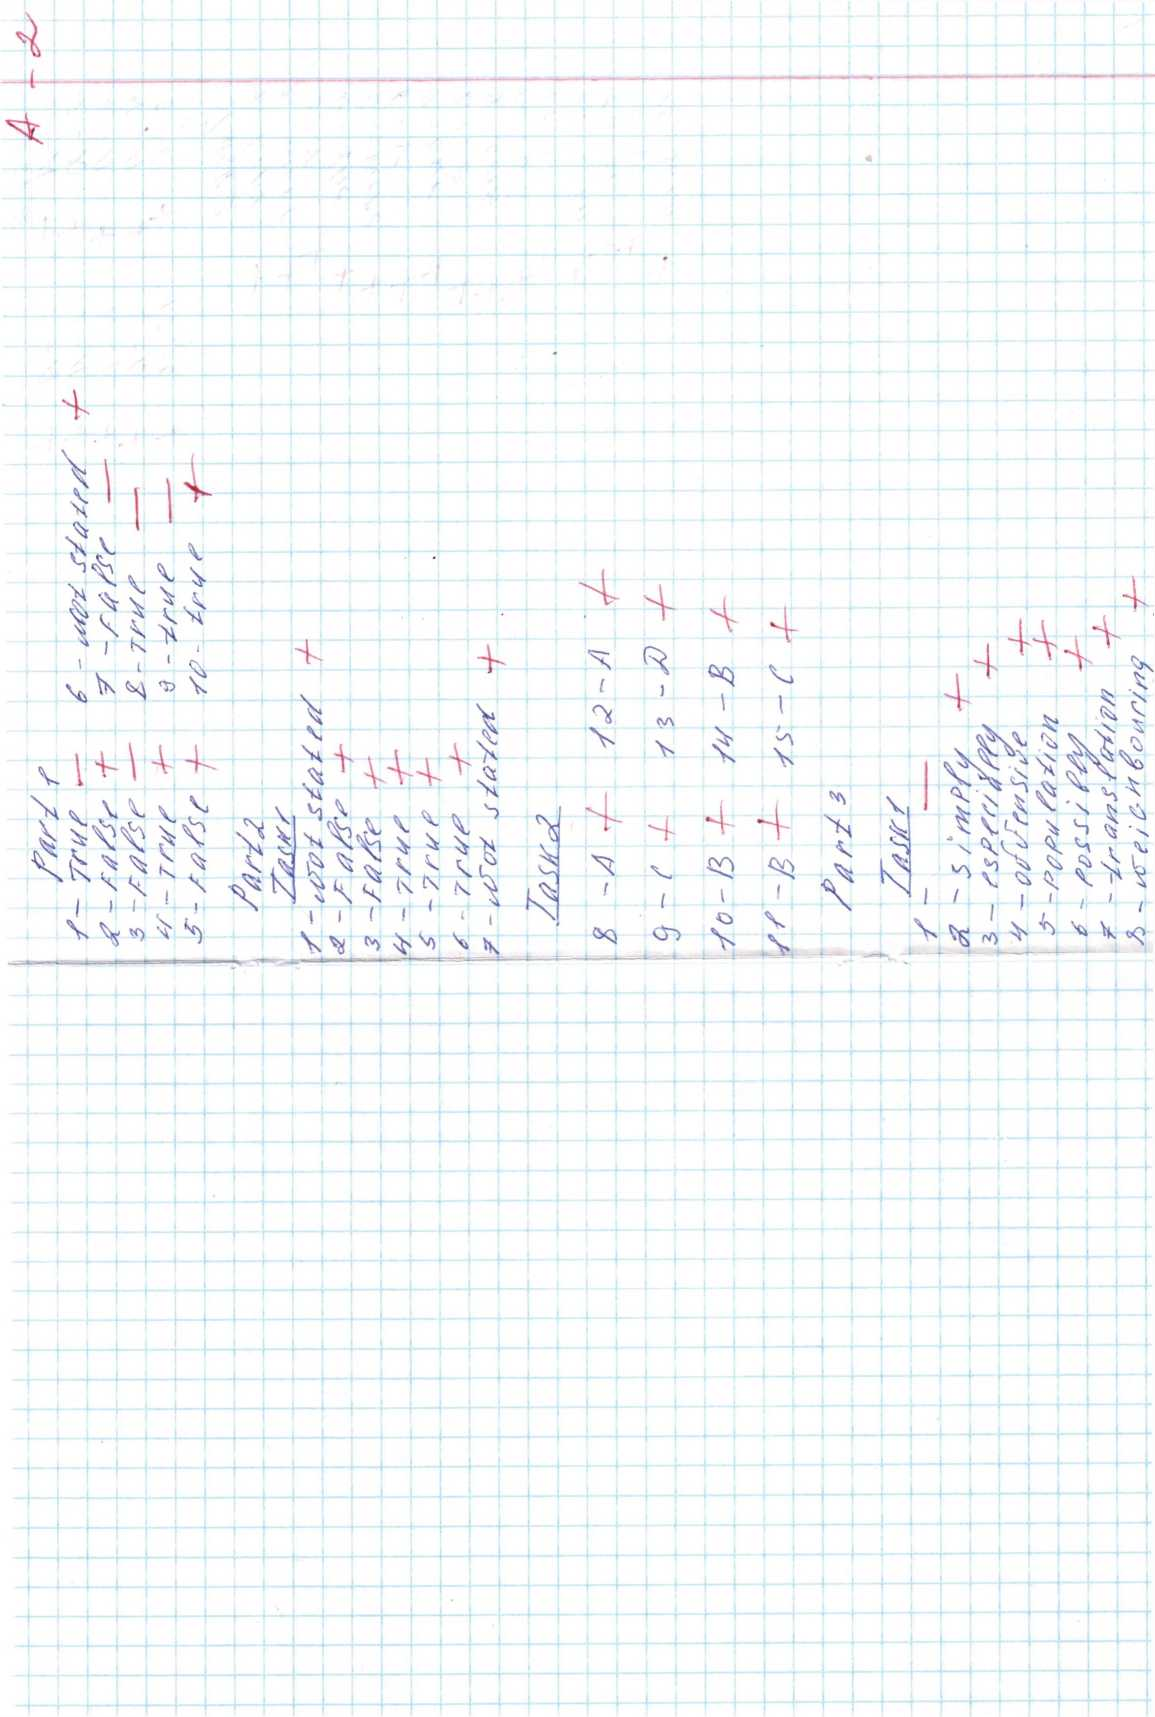 A - 2
Part 1
1 - True - 6 - not stated +
2 - False + 7 - False -
3 - False - 8 - True -
4 - True + 9 - true -
5 - False + 10 - true +
Part 2
Task 1
1 - not stated +
2 - False +
3 - False +
4 - True +
5 - True +
6 - True +
7 - not stated +
Task 2
8 - A + 12 - A +
9 - C + 13 - D +
10 - B + 14 - B +
11 - B + 15 - C +
Part 3
Task 1
1 - -
2 - simply +
3 - especially +
4 - offensive +
5 - population +
6 - possibly +
7 - translation +
8 - neighbouring +